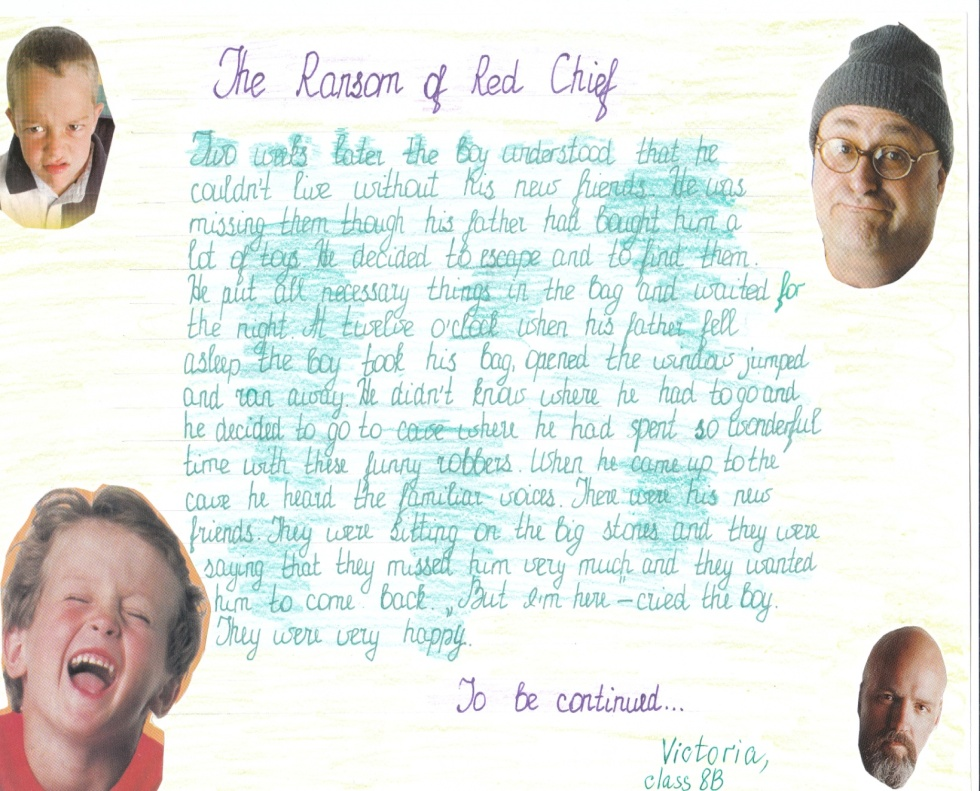 The Ransom of Red Chief
Two weeks later the boy understood that he
couldn't live without his new friends. He was
missing them though his father had bought him a
lot of toys. He decided to escape and to find them.
He put all necessary things in the bag and waited for
the night. At twelve o'clock when his father fell
asleep the boy took his bag, opened the window jumped
and ran away. He didn't know where he had to go and
he decided to go to cave where he had spent so wonderful
time with these funny robbers. When he came up to the
cave he heard the familiar voices. There were his new
friends. They were sitting on the big stones and they were
saying that they missed him very much and they wanted
him to come back. „But I'm here" – cried the boy.
They were very happy.
To be continued...
Victoria,
class 8B